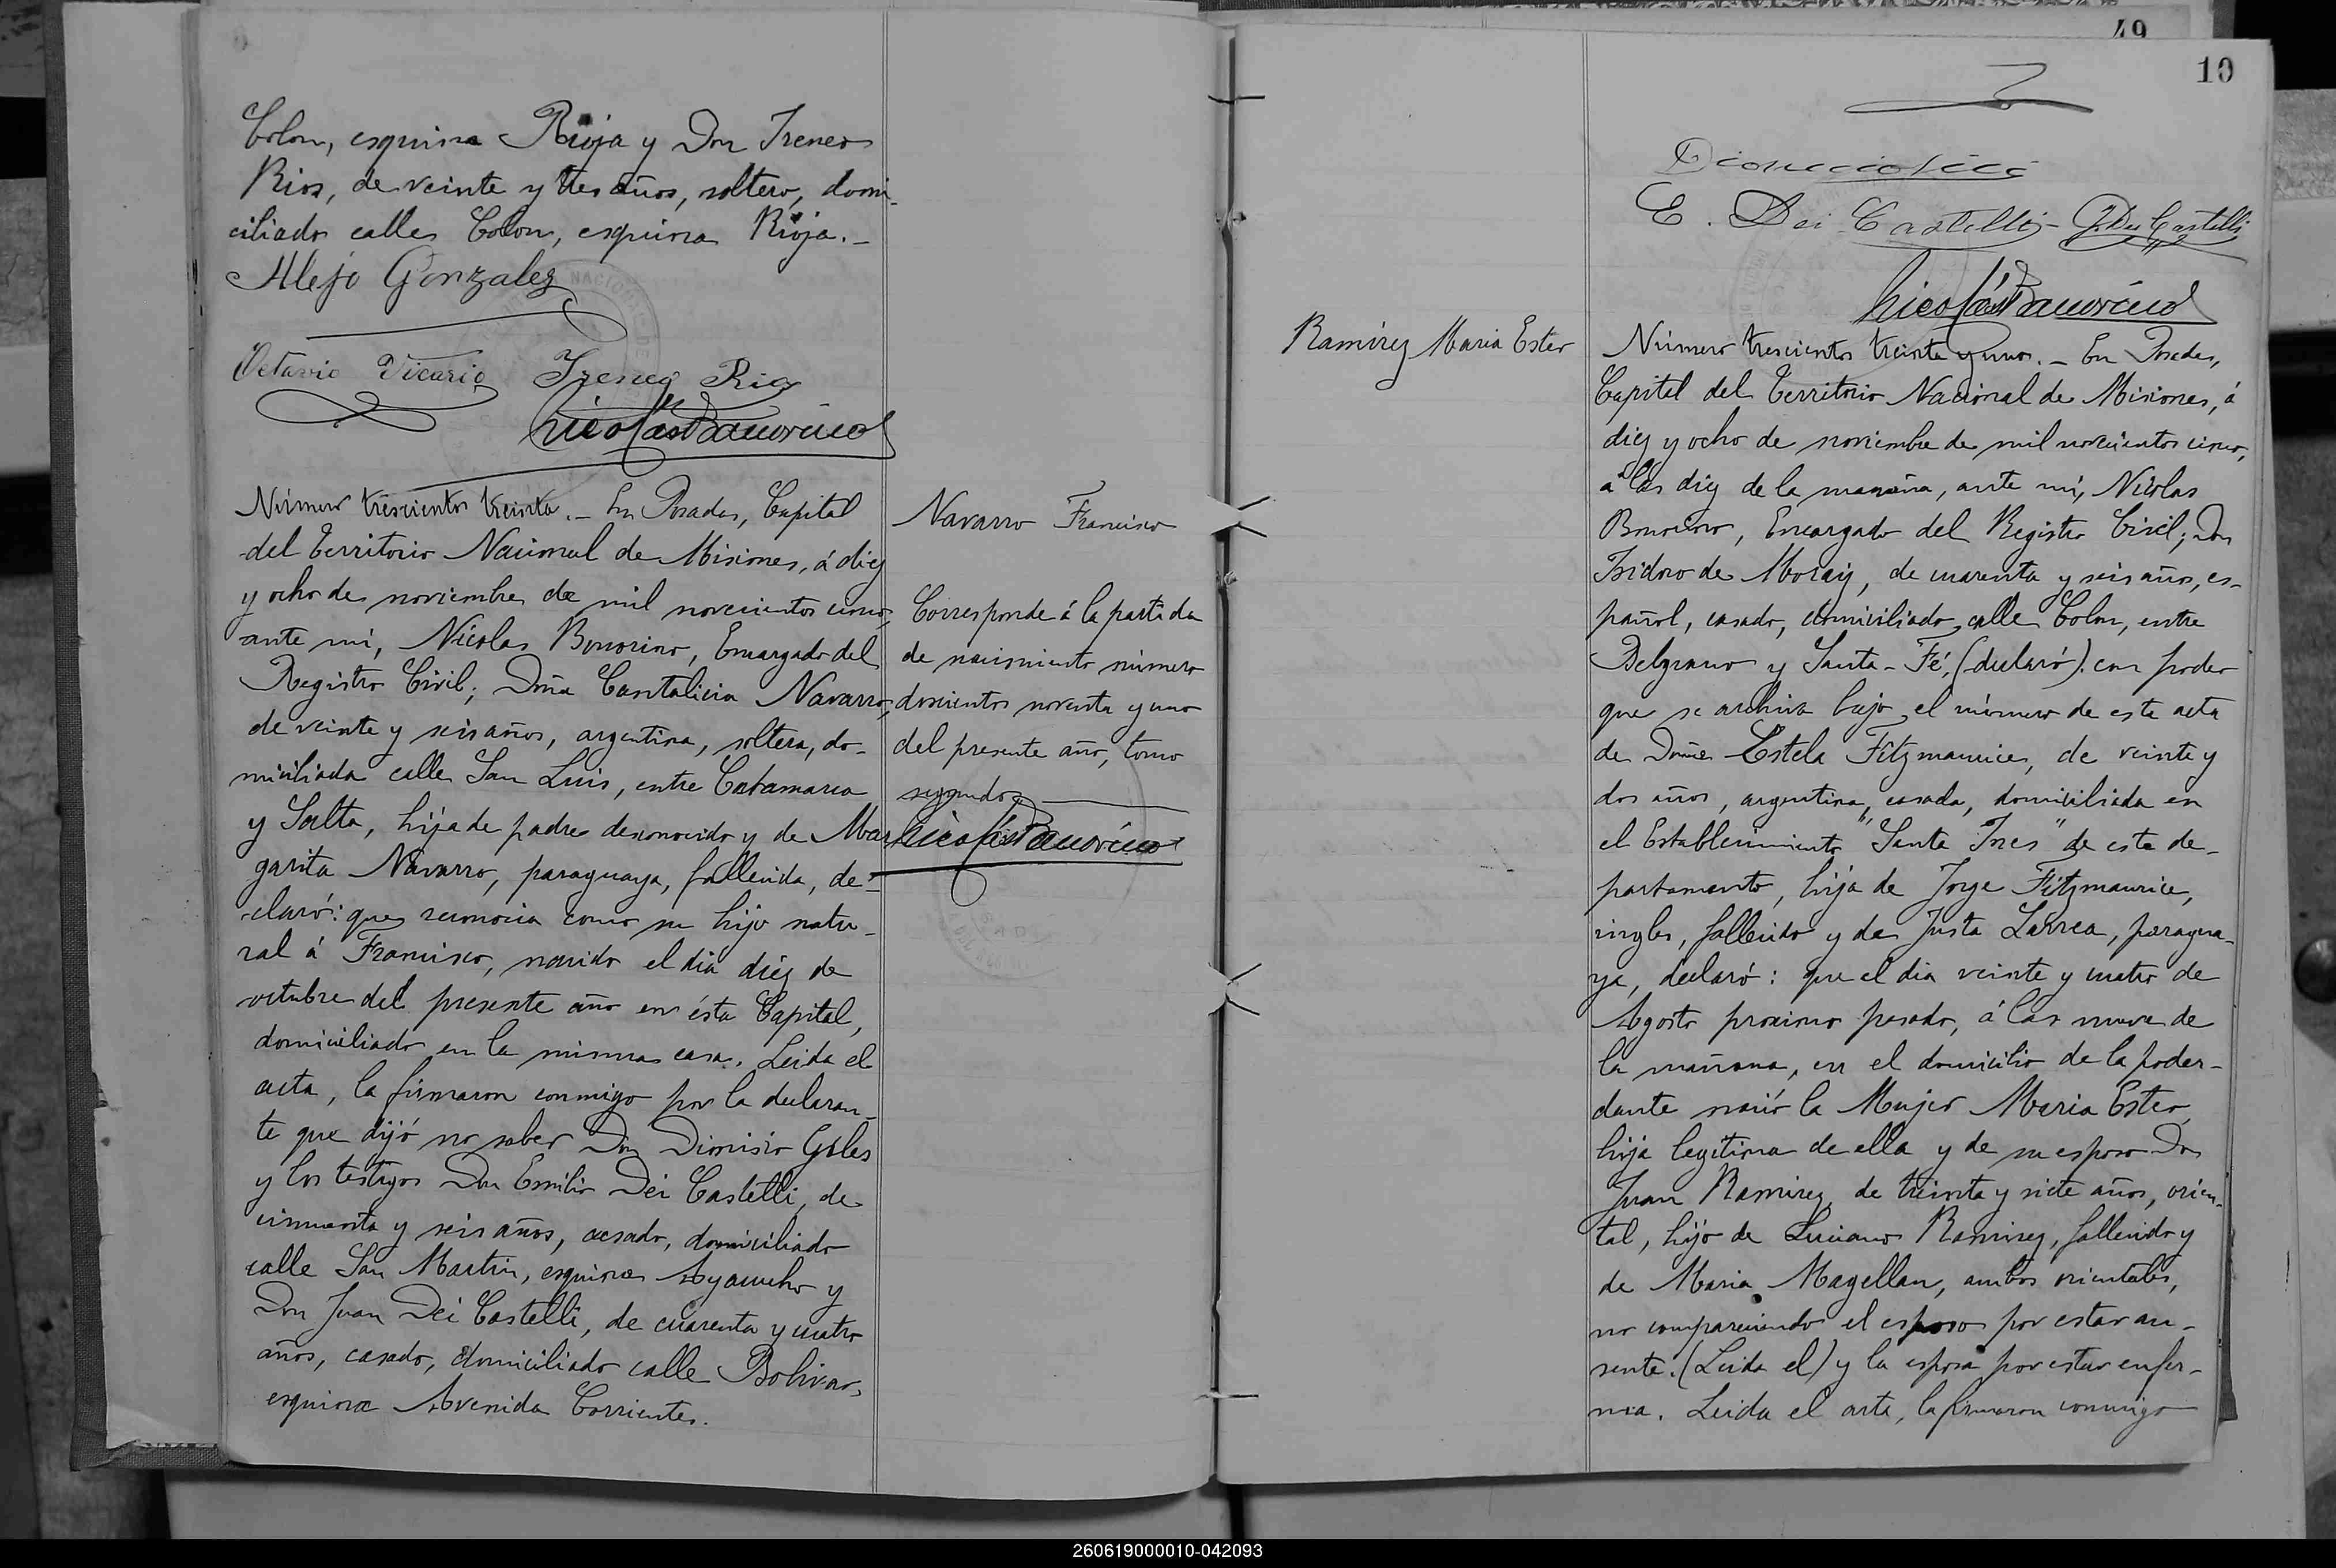 Colon, esquina Rioja y Don Ireneo
Rios, de veinte y tres años, soltero, domi-
ciliado calles Colon, esquina Rioja.-
Alejo Gonzalez
Octavio Vicario Ireneo Rios
Nicolás Bonorino
Número trescientos treinta.- En Posadas, Capital
del Territorio Nacional de Misiones, á diez
y ocho de noviembre de mil novecientos cinco,
ante mi, Nicolas Bonorino, Encargado del
Registro Civil; Doña Cantalicia Navarro,
de veinte y seis años, argentina, soltera, do-
miciliada calle San Luis, entre Catamarca
y Salta, hija de padre desconocido y de Mar-
garita Navarro, paraguaya, fallecida, de-
claró: que reconocia como su hijo natu-
ral á Francisco, nacido el dia diez de
octubre del presente año en ésta Capital,
domiciliado en la misma casa. Leida el
acta, la firmaron conmigo por la declaran-
te que dijó no saber Don Dionisio Giles
y los testigos Don Emilio Dei Castelli, de
cincuenta y seis años, casado, domiciliado
calle San Martin, esquina Ayacucho y
Don Juan Dei Castelli, de cuarenta y cuatro
años, casado, domiciliado calle Bolivar,
esquina Avenida Corrientes.
Navarro Francisco
Corresponde á la partida
de nacimiento número
doscientos noventa y uno
del presente año, tomo
segundo.
Nicolás Bonorino
49
10
E. Dei Castelli - J. Dei Castelli
Nicolás Bonorino
Ramirez Maria Ester
Número trescientos treinta y uno.- En Posadas,
Capital del Territorio Nacional de Misiones, á
diez y ocho de noviembre de mil novecientos cinco,
á las diez de la mañana, ante mi, Nicolas
Bonorino, Encargado del Registro Civil; Don
Isidro de Moray, de cuarenta y seis años, es-
pañol, casado, domiciliado calle Colon, entre
Belgrano y Santa-Fé, (declaró) con poder
que se archiva bajo el número de este acta
de Doña Estela Fitzmaurice, de veinte y
dos años, argentina, casada, domiciliada en
el Establecimiento "Santa Ines" de este de-
partamento, hija de Jorge Fitzmaurice,
ingles, fallecido y de Justa Larrea, paragua-
ya, declaró: que el dia veinte y cuatro de
Agosto proximo pasado, á las nueve de
la mañana, en el domicilio de la poder-
dante nació la Mujer Maria Ester,
hija legitima de ella y de su esposo Don
Juan Ramirez, de treinta y siete años, orien-
tal, hijo de Luciano Ramirez, fallecido y
de Maria Magellan, ambos orientales,
no compareciendo el esposo por estar au-
sente. (Leida el) y la esposa por estar enfer-
ma. Leida el acta, la firmaron conmigo
260619000010-042093